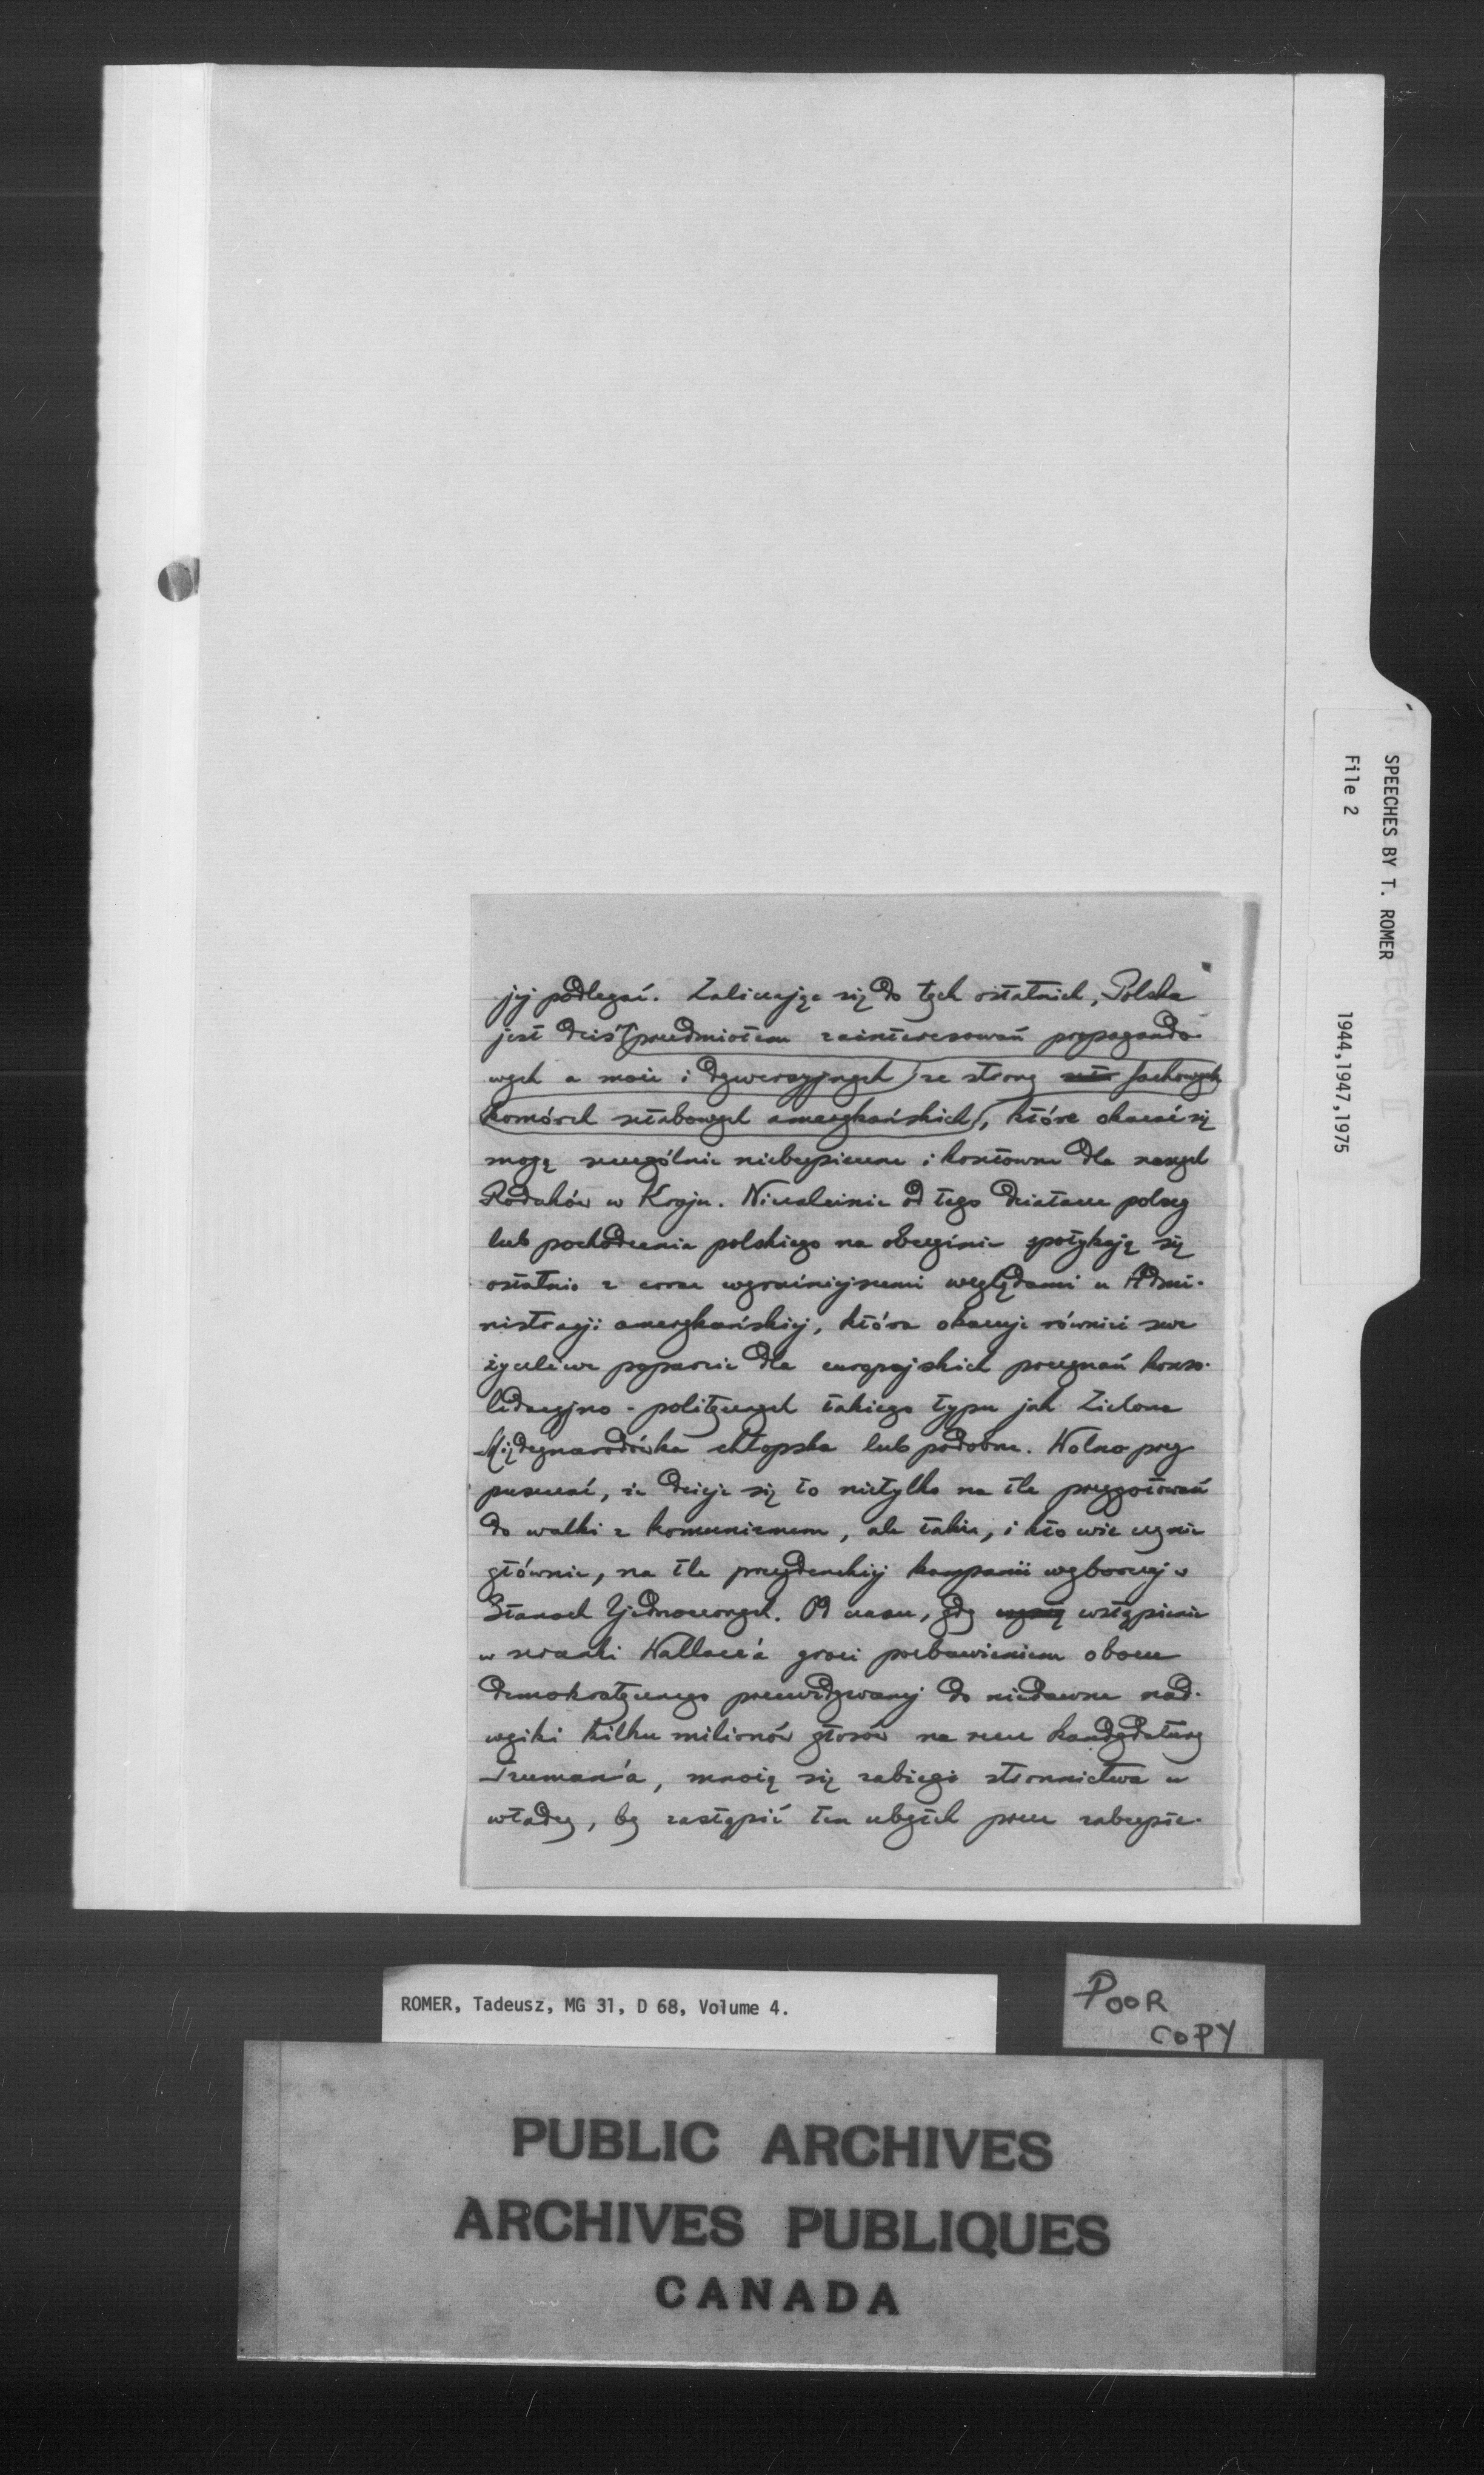 jej podlegać. Zaliczając się do tych ostatnich, Polska
jest dziś przedmiotem zainteresowań propagando-
wych a może i dywersyjnych ze strony fachowych
komórek sztabowych amerykańskich, które okazać się
mogą szczególnie niebezpieczne i kosztowne dla naszych
Rodaków w Kraju. Niezależnie od tego działacze polscy
lub pochodzenia polskiego na obczyźnie spotykają się
ostatnio z coraz wyraźniejszemi względami u Admi-
nistracji amerykańskiej, która okazuje również swe
życzliwe poparcie dla europejskich poczynań konso-
lidacyjno-politycznych takiego typu jak Zielona
Międzynarodówka chłopska lub podobne. Wolno przy
puszczać, że dzieje się to nietylko na tle przygotowań
do walki z komunizmem, ale także, i kto wie czy nie
głównie, na tle prezydenckiej kampanii wyborczej w
Stanach Zjednoczonych. Od czasu, gdy wstąpienie
w szranki Wallace'a grozi pozbawieniem obozu
demokratycznego przewidywanej do niedawna nad-
wyżki kilku milionów głosów na rzecz kandydatury
Truman'a, mnożą się zabiegi stronnictwa u
władzy, by zastąpić ten ubytek przez zabezpie-
SPEECHES BY T. ROMER
File 2
1944,1947,1975
ROMER, Tadeusz, MG 31, D 68, Volume 4.
POOR
COPY
PUBLIC ARCHIVES
ARCHIVES PUBLIQUES
CANADA